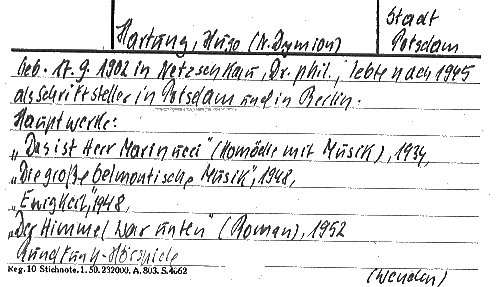 Hartung, Hugo (N. Dymion)
Stadt
Potsdam
geb. 17.9.1902 in Netzschkau, Dr. phil., lebte nach 1945
als Schriftsteller in Potsdam und in Berlin.
Hauptwerke:
„Das ist Herr Marinucci" (Komödie mit Musik), 1934,
„Die große belmontische Musik", 1948,
„Ewigkeit", 1948,
„Der Himmel war unten" (Roman), 1952
Rundfunk-Hörspiele
Reg. 10 Stichnote. 1. 50. 232000. A. 803. S. 4662
(wenden)